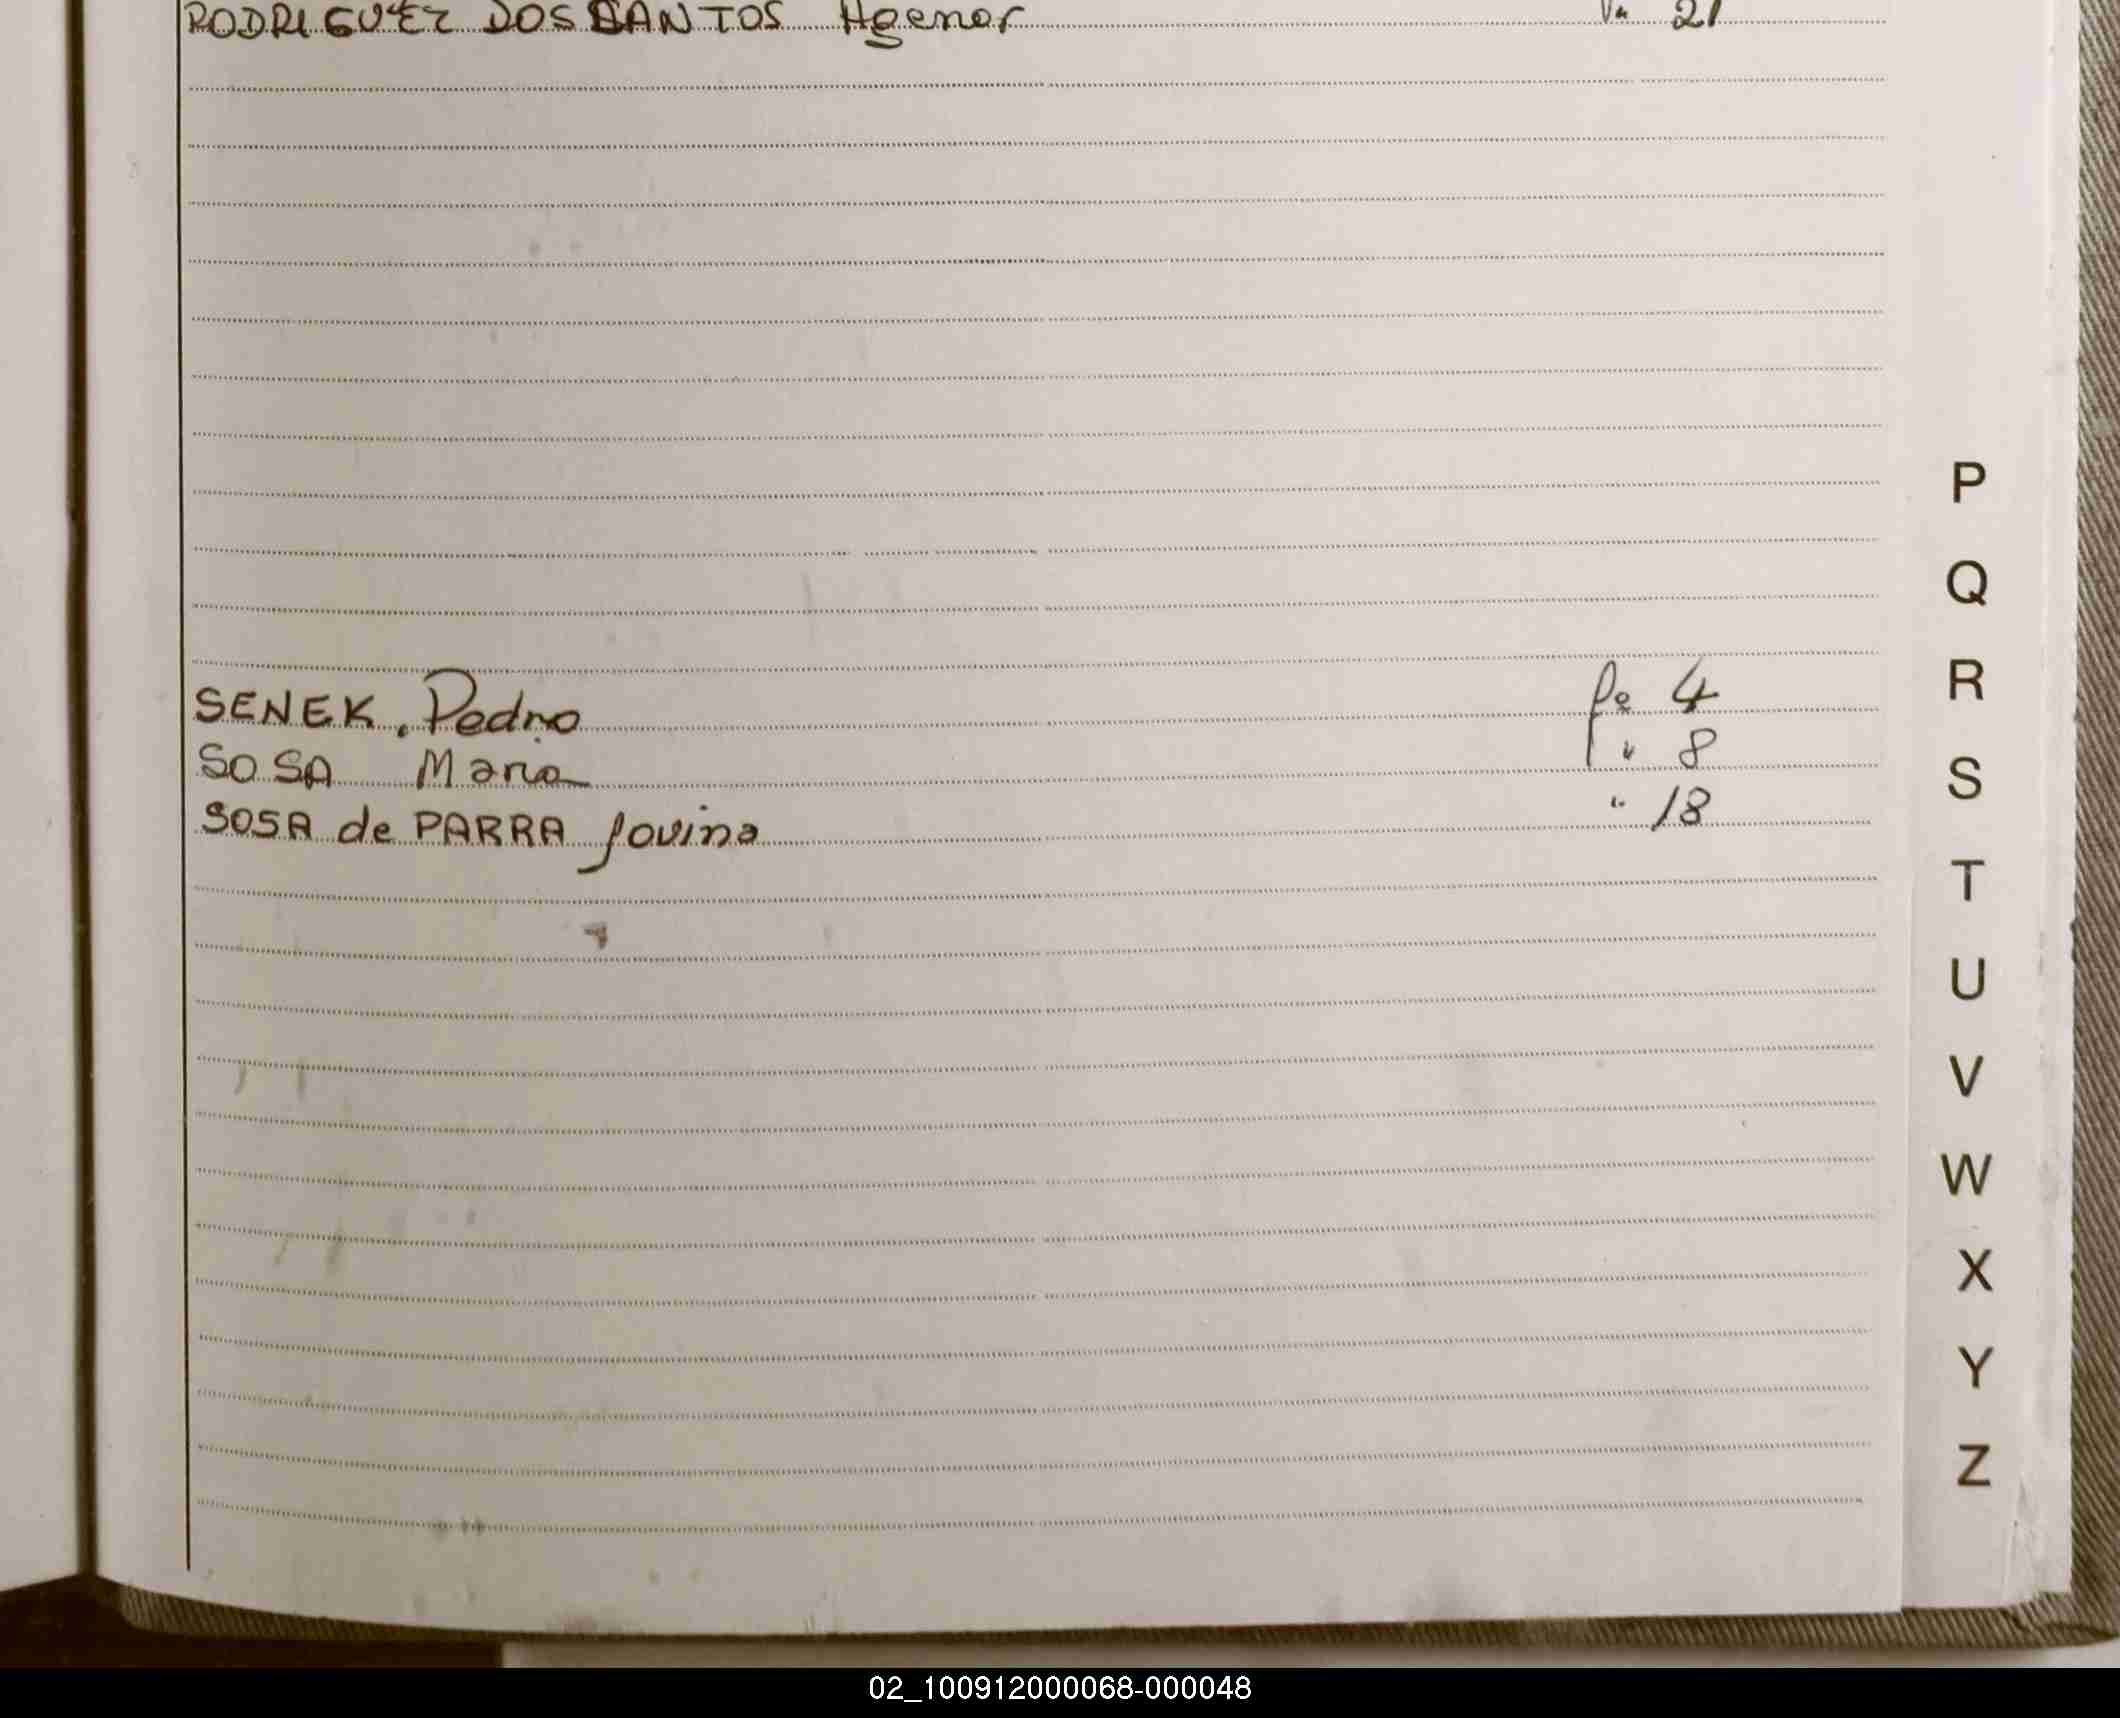 RODRIGUEZ DOS SANTOS Agenor 21
SENEK, Pedro fo 4
SOSA Maria " 8
SOSA de PARRA Jovina " 18
P
Q
R
S
T
U
V
W
X
Y
Z
02_100912000068-000048